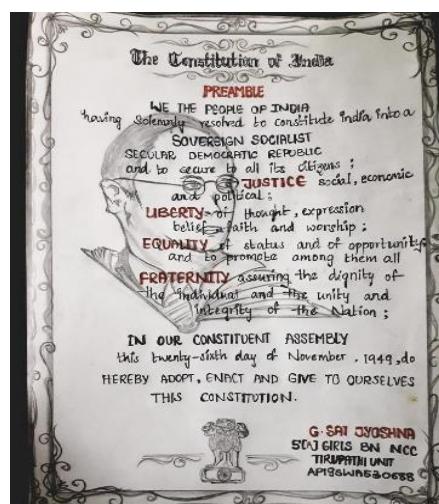 The Constitution of India
PREAMBLE
WE THE PEOPLE OF INDIA
having Solemnly resolved to constitute India into a
SOVERSIGN SOCIALIST
SECULAR DEMOCRATIC REPUBLIC
and to secure to all its citizens ;
JUSTICE social, economic
and political ;
LIBERTY of thought, expression
belief faith and worship ;
EQUALITY of status and of opportunity
and to promote among them all
FRATERNITY assuring the dignity of
the individual and the unity and
integrity of the Nation ;
IN OUR CONSTITUENT ASSEMBLY
this twenty-sixth day of November . 1949, do
HEREBY ADOPT, ENACT AND GIVE TO OURSELVES
THIS CONSTITUTION.
G. SAI JYOSHNA
5(A) GIRLS BN NCC
TIRUPATHI UNIT